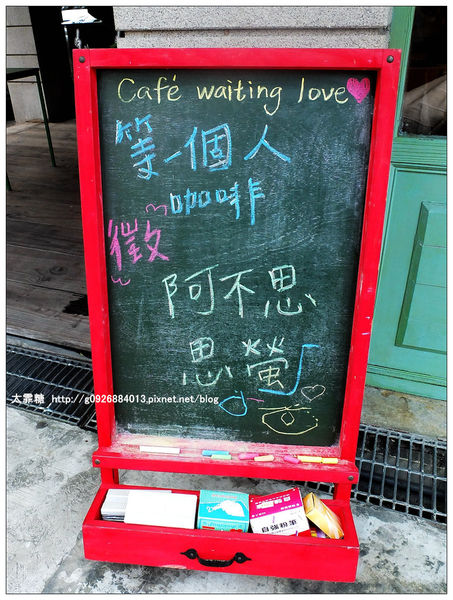 Café waiting love
等一個人
咖啡
徵
阿不思
思螢
太霏糖 http://g0926884013.pixnet.net/blog